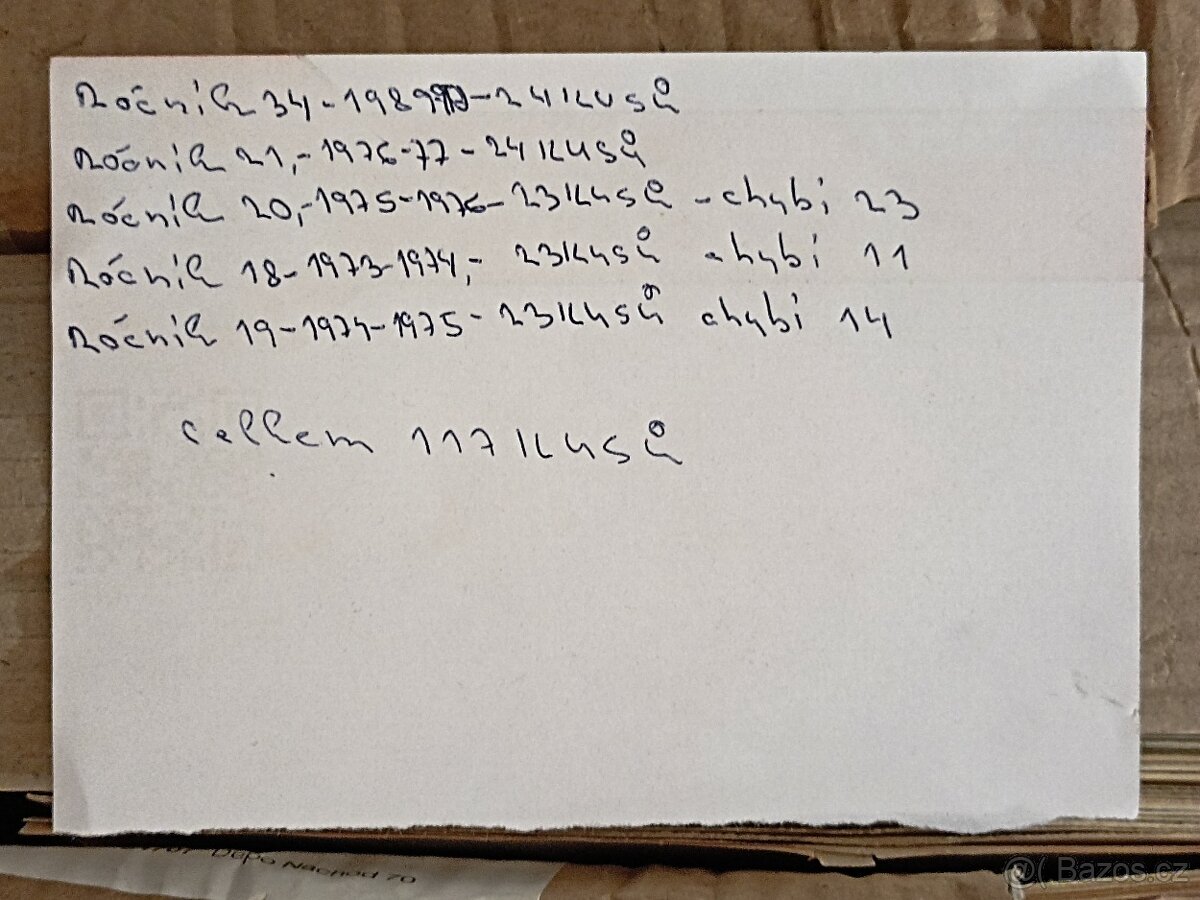 Ročník 34-1989-90-24 kusů
Ročník 21,-1976-77-24 kusů
Ročník 20,-1975-1976-23 kusů-chybí 23
Ročník 18-1973-1974,- 23 kusů chybí 11
Ročník 19-1974-1975-23 kusů chybí 14
celkem 117 kusů
Depo Náchod 70
@( Bazos.cz